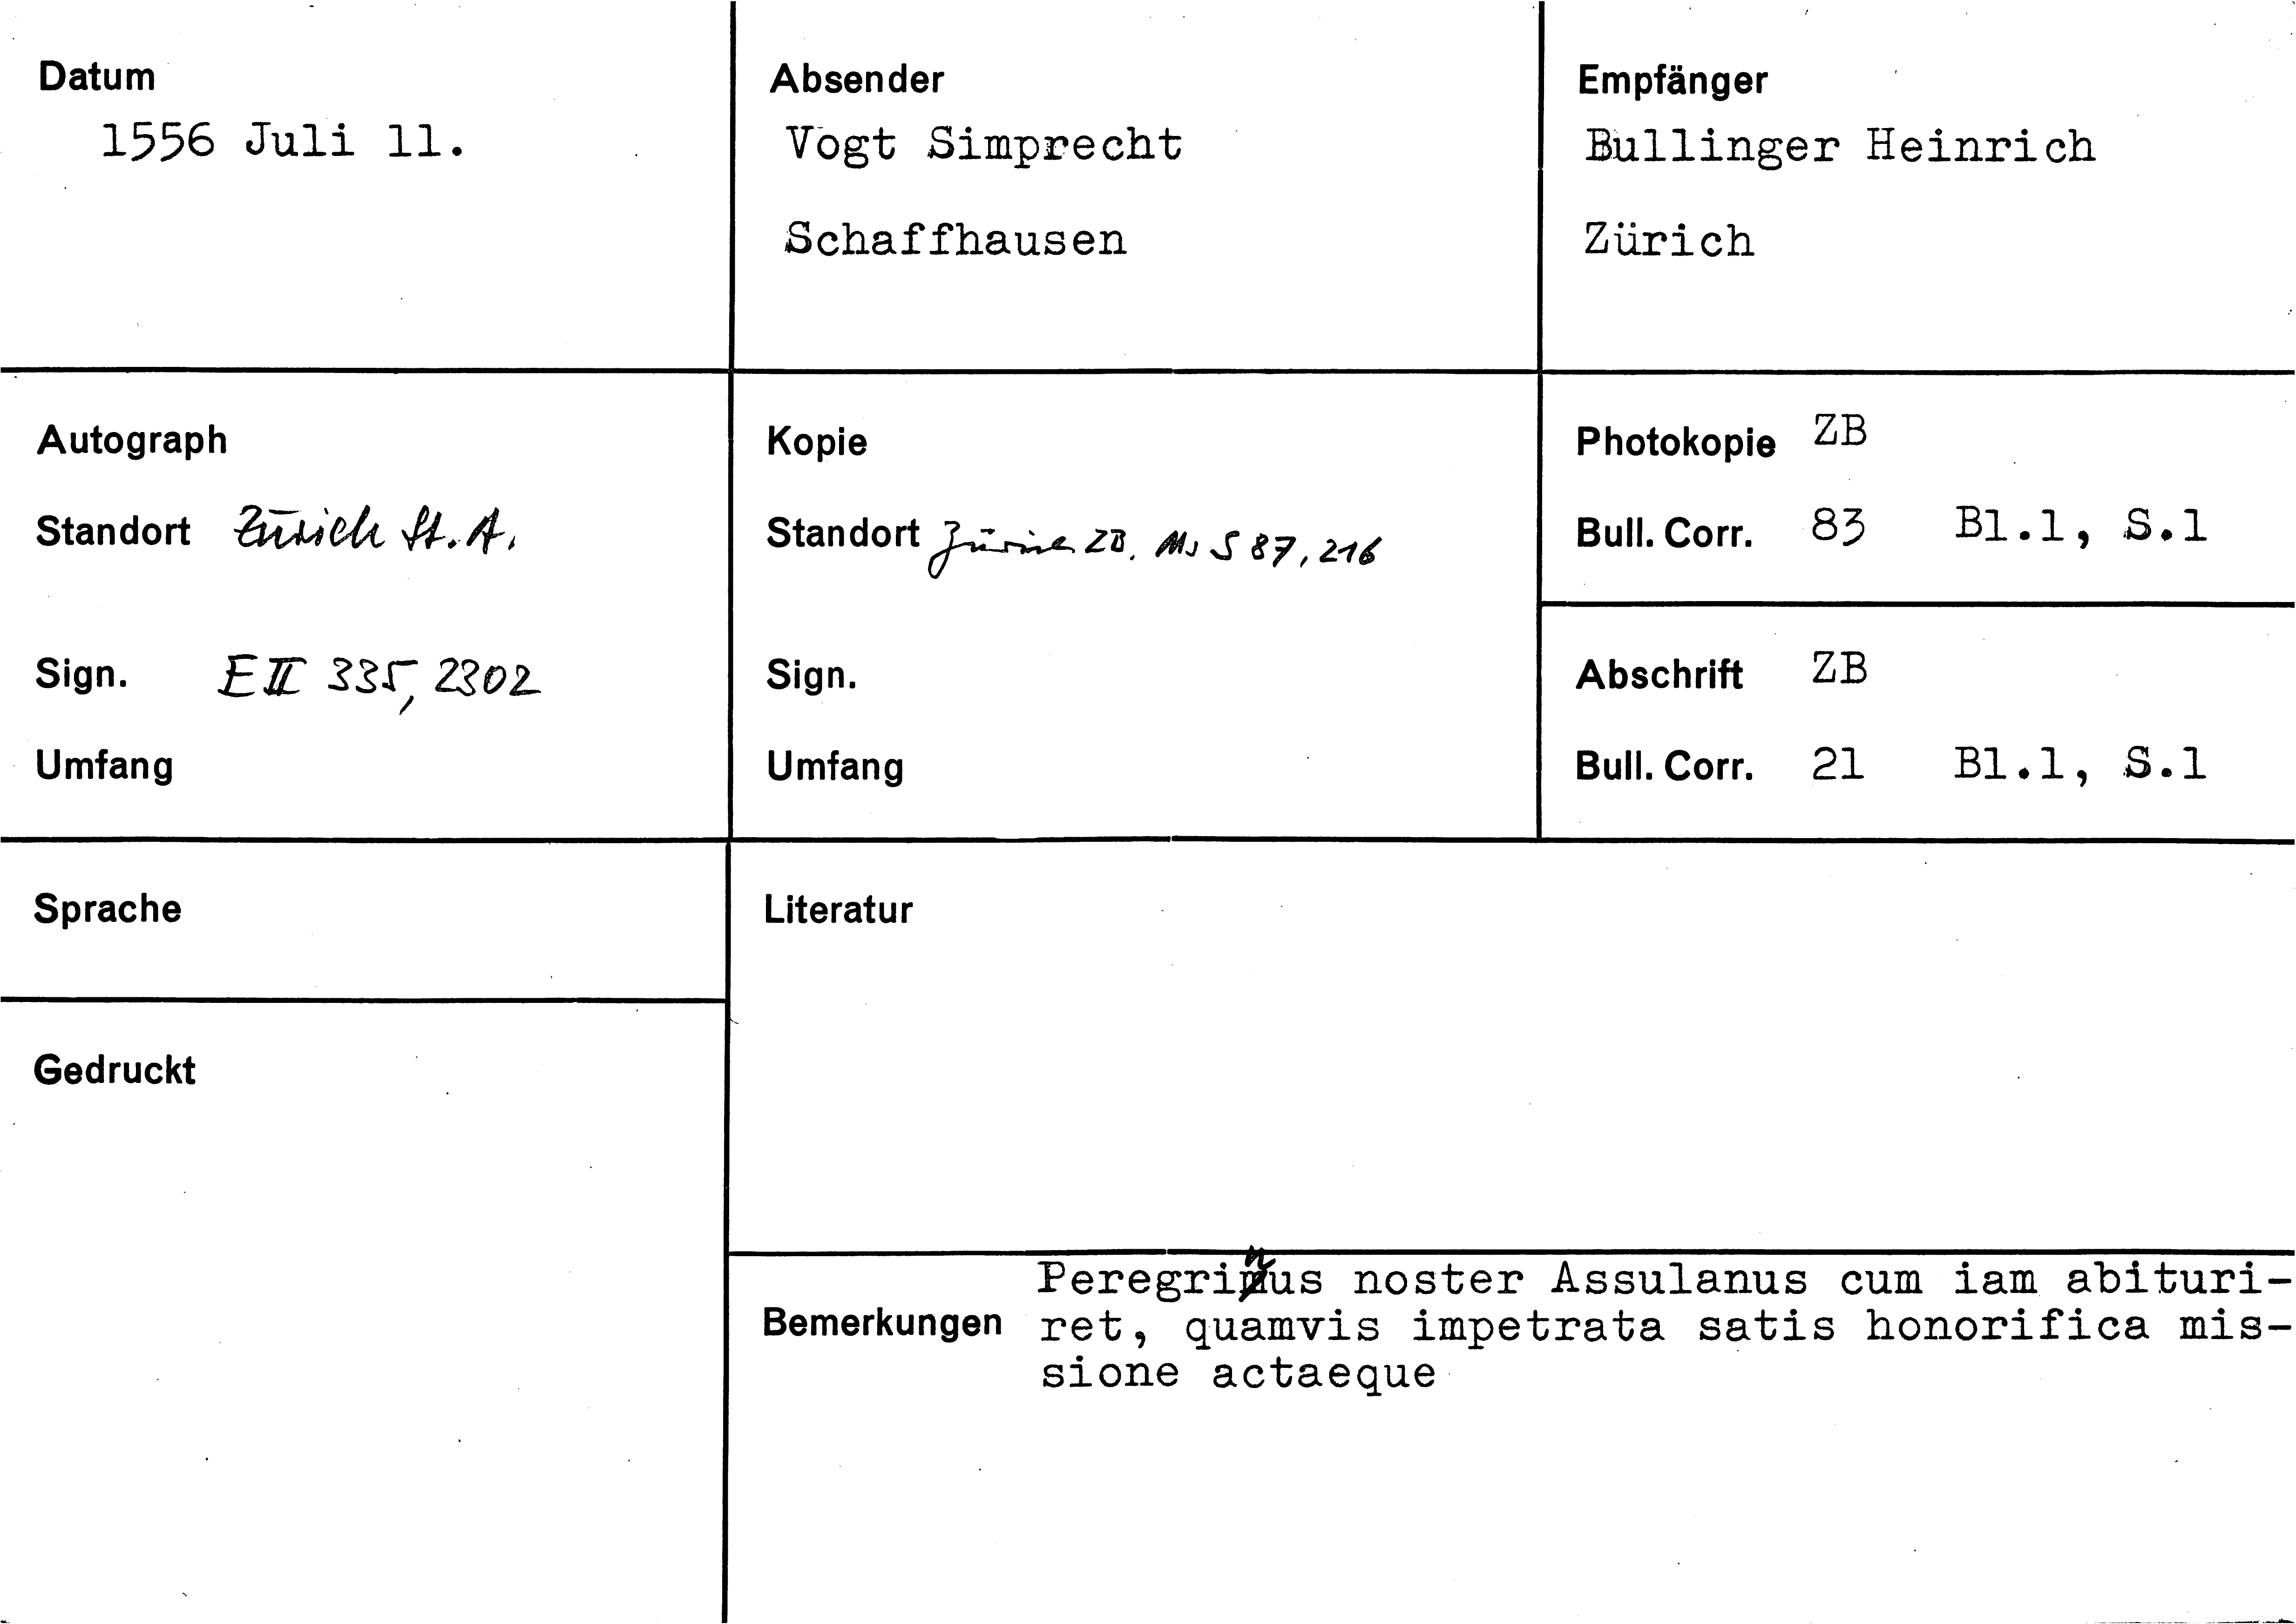 Datum
1556 Juli 11.
Absender
Vogt Simprecht
Schaffhausen
Empfänger
Bullinger Heinrich
Zürich
Autograph
Standort Zürich St. A.
Sign. E II 335, 2302
Umfang
Kopie
Standort Zürich ZB. Ms S 87, 216
Sign.
Umfang
Photokopie ZB
Bull. Corr. 83 Bl.1, S.1
Abschrift ZB
Bull. Corr. 21 Bl.1, S.1
Sprache
Literatur
Gedruckt
Bemerkungen
Peregrinus noster Assulanus cum iam abituri-
ret, quamvis impetrata satis honorifica mis-
sione actaeque